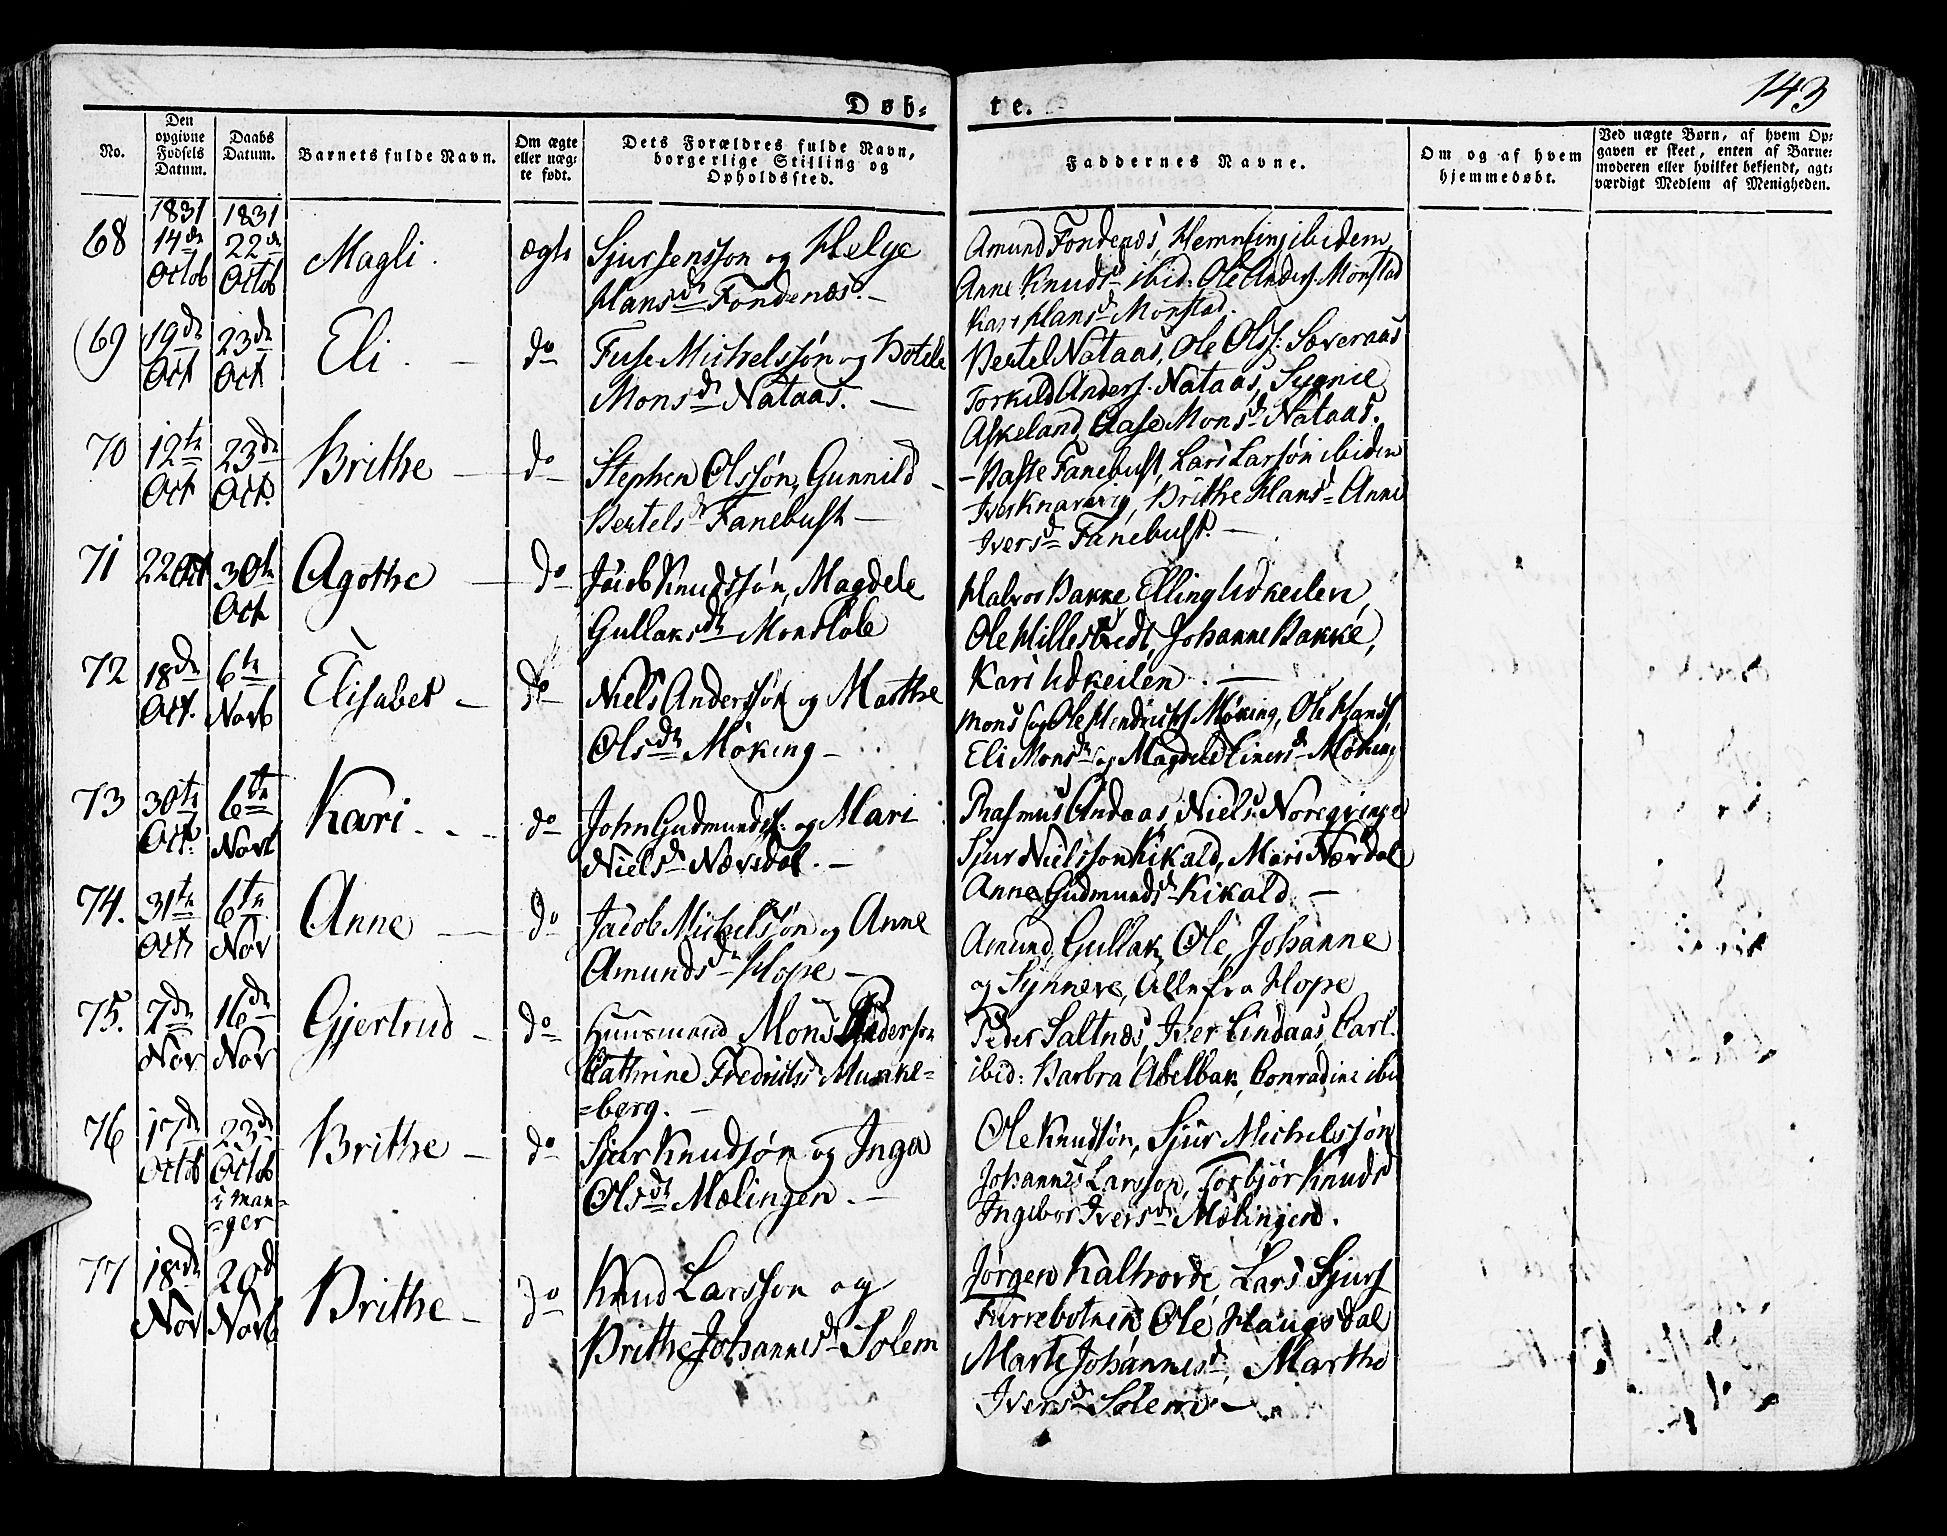 143
Døb-
te.
No.
Den
opgivne
Fødsels
Datum.
Daabs
Datum.
Barnets fulde Navn.
Om ægte
eller uæg-
te født.
Dets Forældres fulde Navn,
borgerlige Stilling og
Opholdssted.
Faddernes Navne.
Om og af hvem
hjemmedøbt.
Ved uægte Børn, af hvem Op-
gaven er skeet, enten af Barne-
moderen eller hvilket bekjendt, agt-
værdigt Medlem af Menigheden.
1831
1831
68
14de
Octob
22de
Octob
Magli.
ægte
Sjur Jensson og Helge
Hansdr Fondenæs.-
Amund Fondenæs, Hemming ibidem,
Anne Knudsd ibid: Ole Anders. Monstad
Kari Hansd Monstad.
69
19de
Oct
23de
Oct
Eli.
do
Fuse Michelssøn og Botele
Monsdr Nataas.
Bertel Nataas, Ole Olss: Sæveraas
Torkild Anders. Nataas, Sygnie
Askeland, Aase Monsd Nataas.
70
12te
Oct
23de
Oct.
Brithe
do
Stephen Olssøn, Gunnild
Bertelsdr Fanebust
Baste Fanebust, Lars Larsøn ibidem
Iver Knarvig, Brithe Hansd Anne
Iversd Fanebust.
71
22 Oct
30te
Oct
Agothe
do
Jacob Knudssøn, Magdele
Gullaksdr Monsløbe
Halvor Bakke, Elling Udkeilen,
Ole Millestvedt, Johanne Bakke,
Kari Udkeilen.
72
18de
Oct.
6te
Novb
Elisabet
do
Niels Anderssøn og Marthe
Olsdr Møking
Mons og Ole Hendriks Møking, Ole Hanss,
Eli Monsdr og Magdele Einersd Møking
73
30te
Oct.
6te
Novb
Kari
do
John Gudmundss: og Mari
Nielsd Næsdal.
Rasmus Andaas, Niels Noregringe
Sjur Nielsson Kikald, Mari Nærdal
Anne Gudmundsd Kikald
74.
31te
Oct
6te
Nov
Anne
do
Jacob Michelssøn og Anne
Amundsdr Hope
Amund, Gullak, Ole, Johanne
og Synneve, Alle fra Hope
75.
7de
Nov
16de
Nov
Gjertrud
do
Huusmand Mons Pederson
Cathrine Fredriksd Munke-
=berg.
Peder Saltnæs, Iver Lindaas, Carl
ibid: Barbra Abelbak, Conradine ibid
76
17de
Octob
23de
Octob
i Man-
=ger
Brithe
do
Sjur Knudsøn og Inga
Olsdr Mælingen.
Ole Knudsøn, Sjur Michelssøn
Johannes Larsson, Torbjør Knudsd
Ingebor Iversdr Mælingen.
77
18de
Nov
20d
Novb
Brithe
do
Knud Larsson og
Brithe Johannesdr Solem
Jørgen Kaltvorde, Lars Sjurs
Furrebotnen Ole Haugsdal
Marte Johannesd, Marthe
Iversd Solem